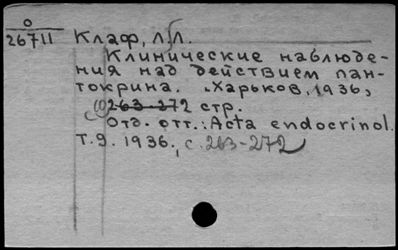 О
26711
Клаф, Л. Л.
Клинические наблюде-
ния над действием пан-
токрина. Харьков, 1936,
263-272 стр.
Отд. отт.: Acta endocrinol.
т. 9. 1936., с. 263-272